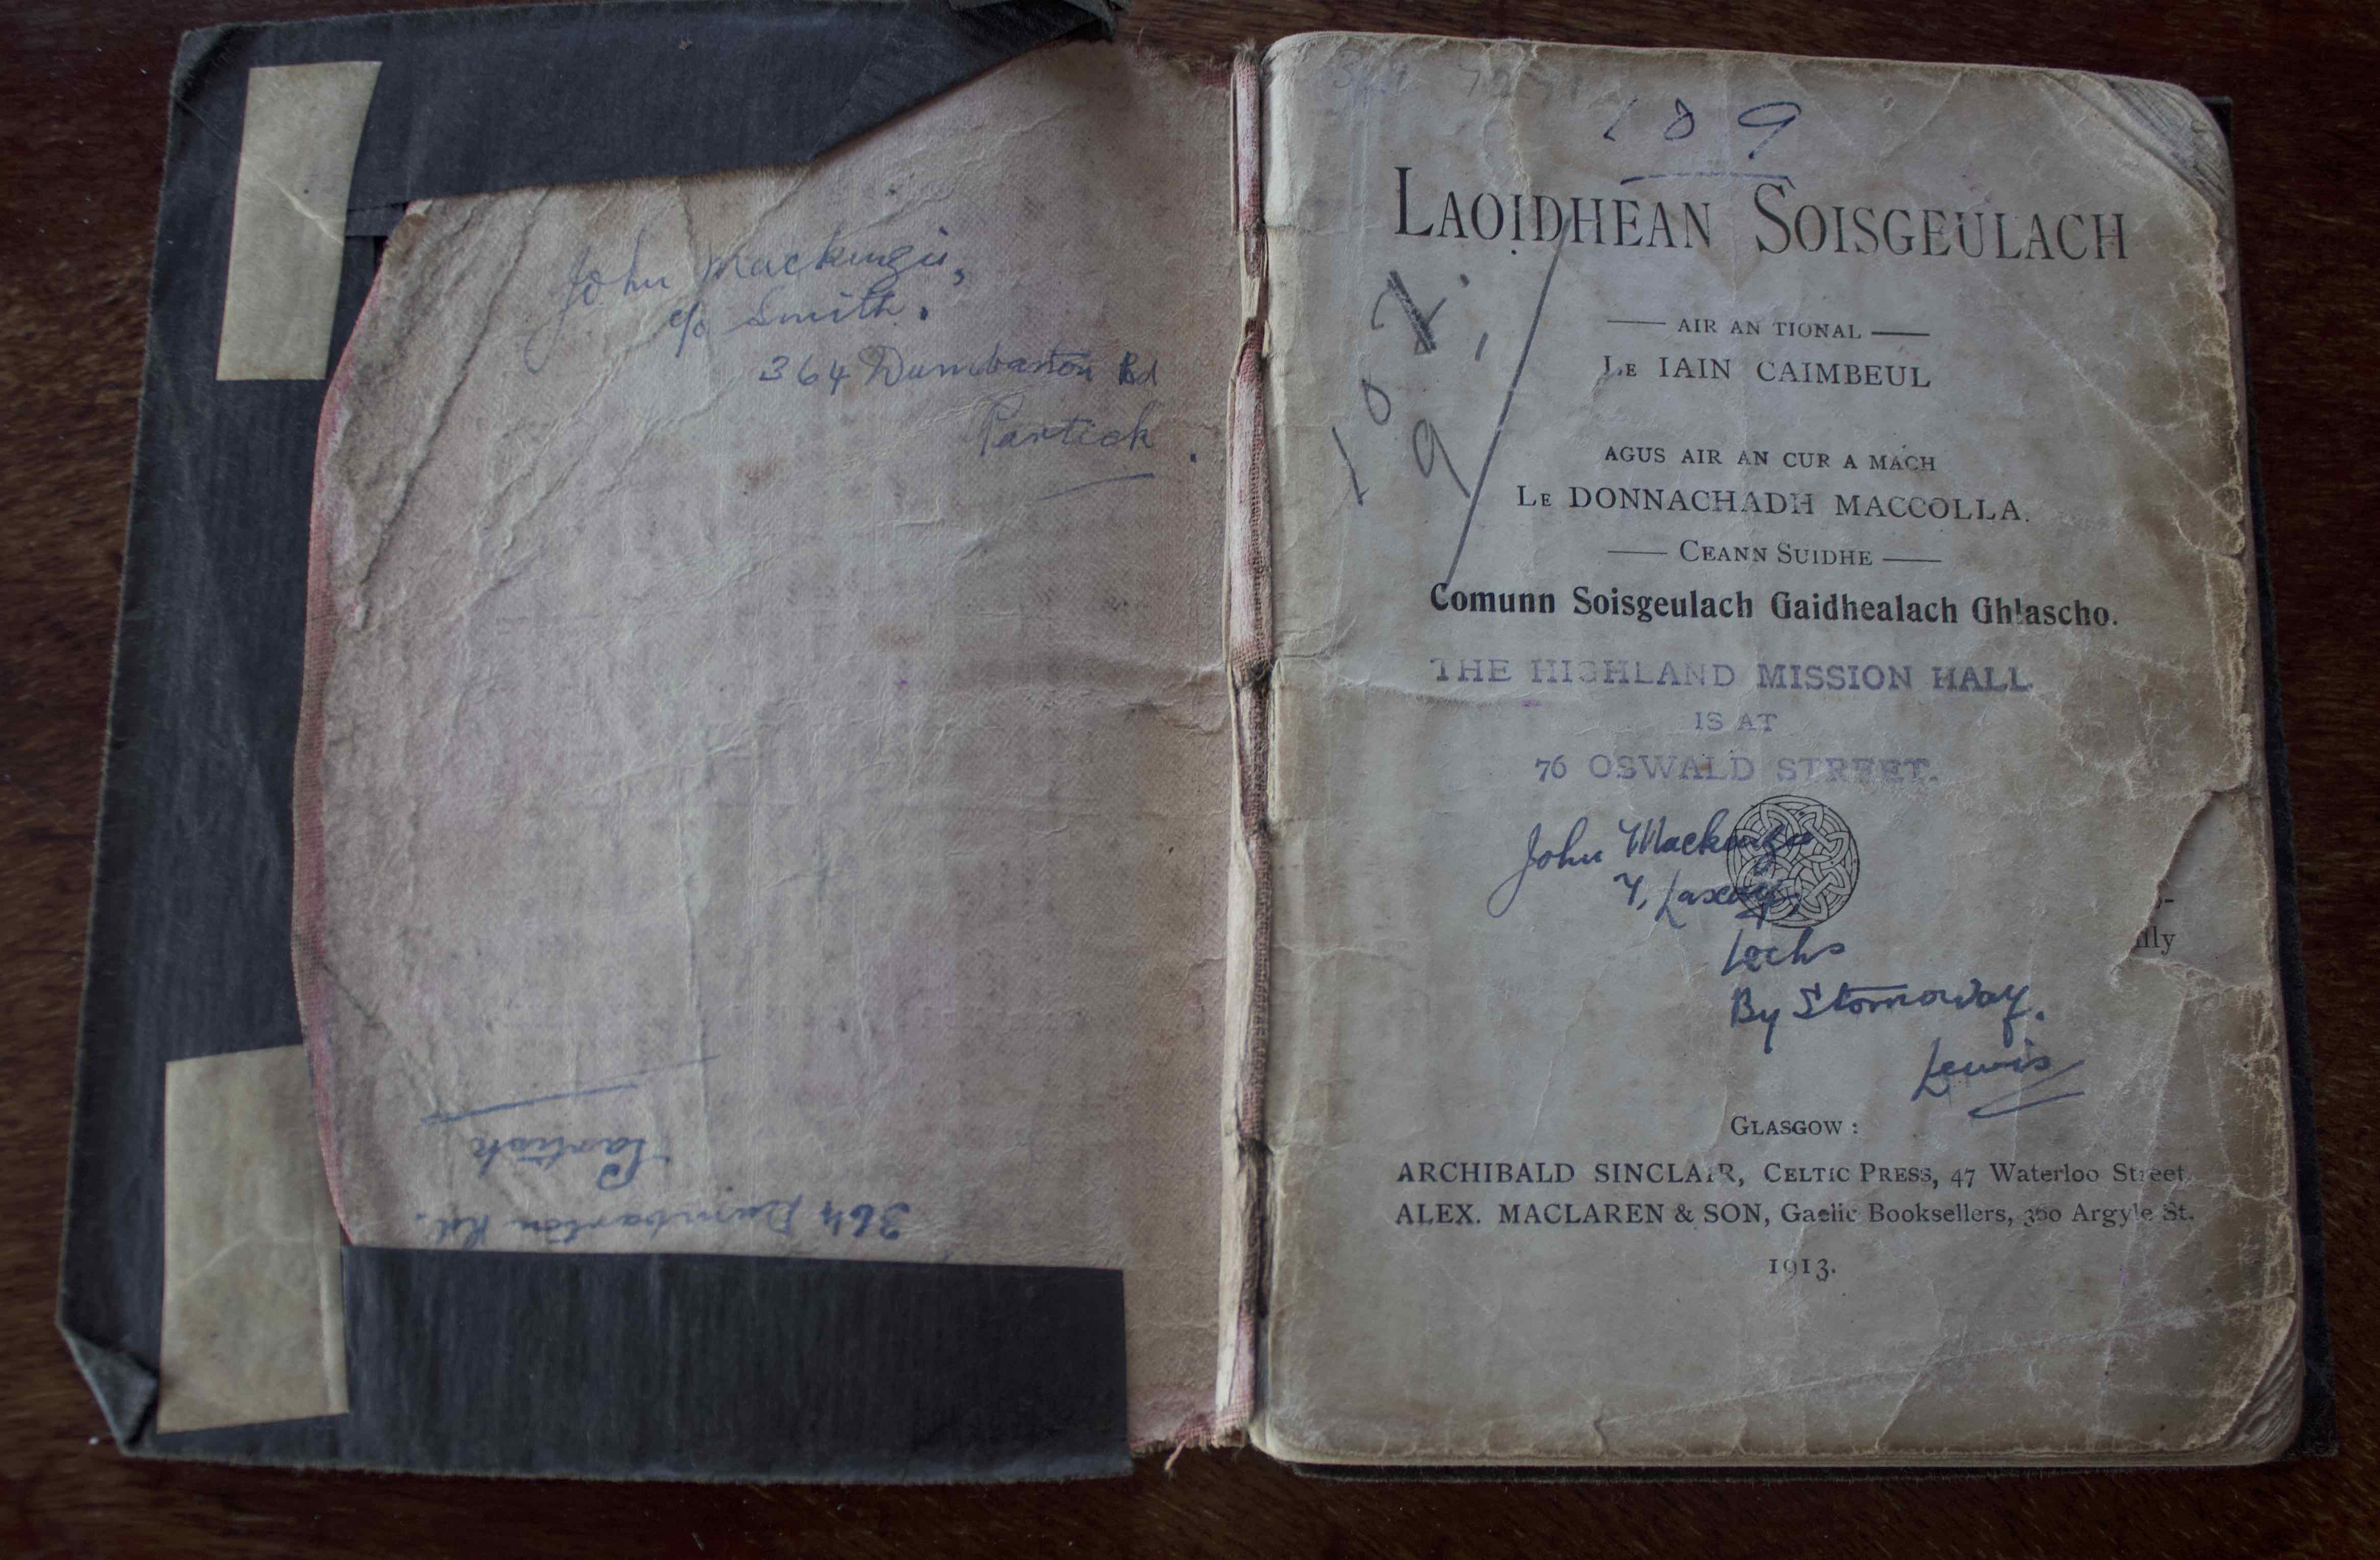 John Mackenzie,
c/o Smith.
364 Dumbarton Rd
Partick.
364 Dumbarton Rd.
Partick
189
LAOIDHEAN SOISGEULACH
AIR AN TIONAL
LE IAIN CAIMBEUL
AGUS AIR AN CUR A MACH
LE DONNACHADH MACCOLLA.
CEANN SUIDHE
Comunn Soisgeulach Gaidhealach Ghlascho.
THE HIGHLAND MISSION HALL
IS AT
76 OSWALD STREET.
John Mackenzie
7, Laxay,
Lochs
By Stornoway.
Lewis
GLASGOW:
ARCHIBALD SINCLAIR, CELTIC PRESS, 47 Waterloo Street,
ALEX. MACLAREN & SON, Gaelic Booksellers, 360 Argyle St.
1913.